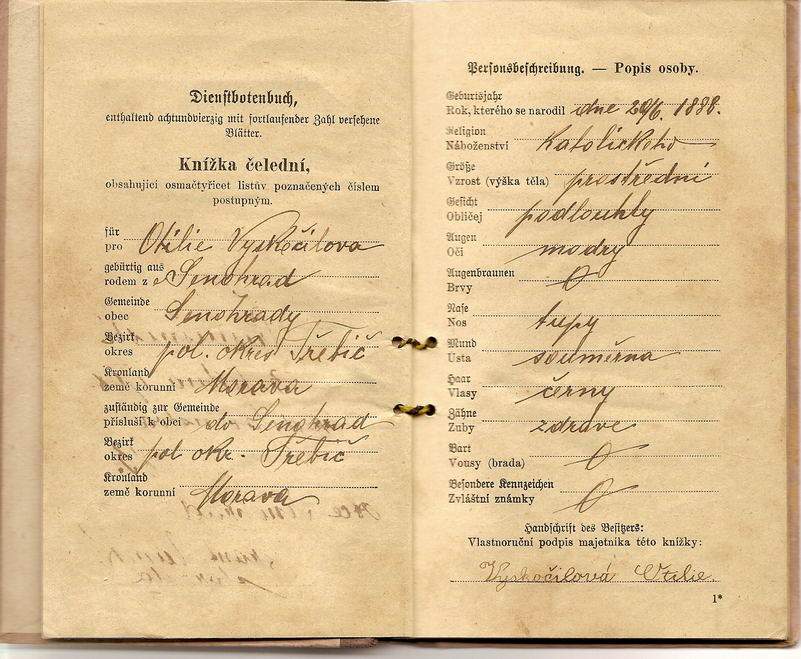 Dienstbotenbuch,
enthaltend achtundvierzig mit fortlaufender Zahl versehene
Blätter.
Knížka čelední,
obsahující osmačtyřicet listův poznačených číslem
postupným.
für
pro Otilie Vyskočilova
gebürtig aus
rodem z e Senohrad
Gemeinde
obec Senohrady
Bezirk
okres pol. okres Třebič
Kronland
země korunní Morava
zuständig zur Gemeinde
přísluší k obci do Senohrad
Bezirk
okres pol okr. Třebič
Kronland
země korunní Morava
Personsbeschreibung. — Popis osoby.
Geburtsjahr
Rok, kterého se narodil dne 20/6. 1888.
Religion
Náboženství Katolického
Größe
Vzrost (výška těla) prostřední
Gesicht
Obličej podlouhly
Augen
Oči modry
Augenbraunen
Brvy 0
Nase
Nos tupy
Mund
Ústa souměrna
Haar
Vlasy černy
Zähne
Zuby zdrave
Bart
Vousy (brada) 0
Besondere Kennzeichen
Zvláštní známky 0
Handschrift des Besitzers:
Vlastnoruční podpis majetníka této knížky:
Vyskočilová Otilie.
1*